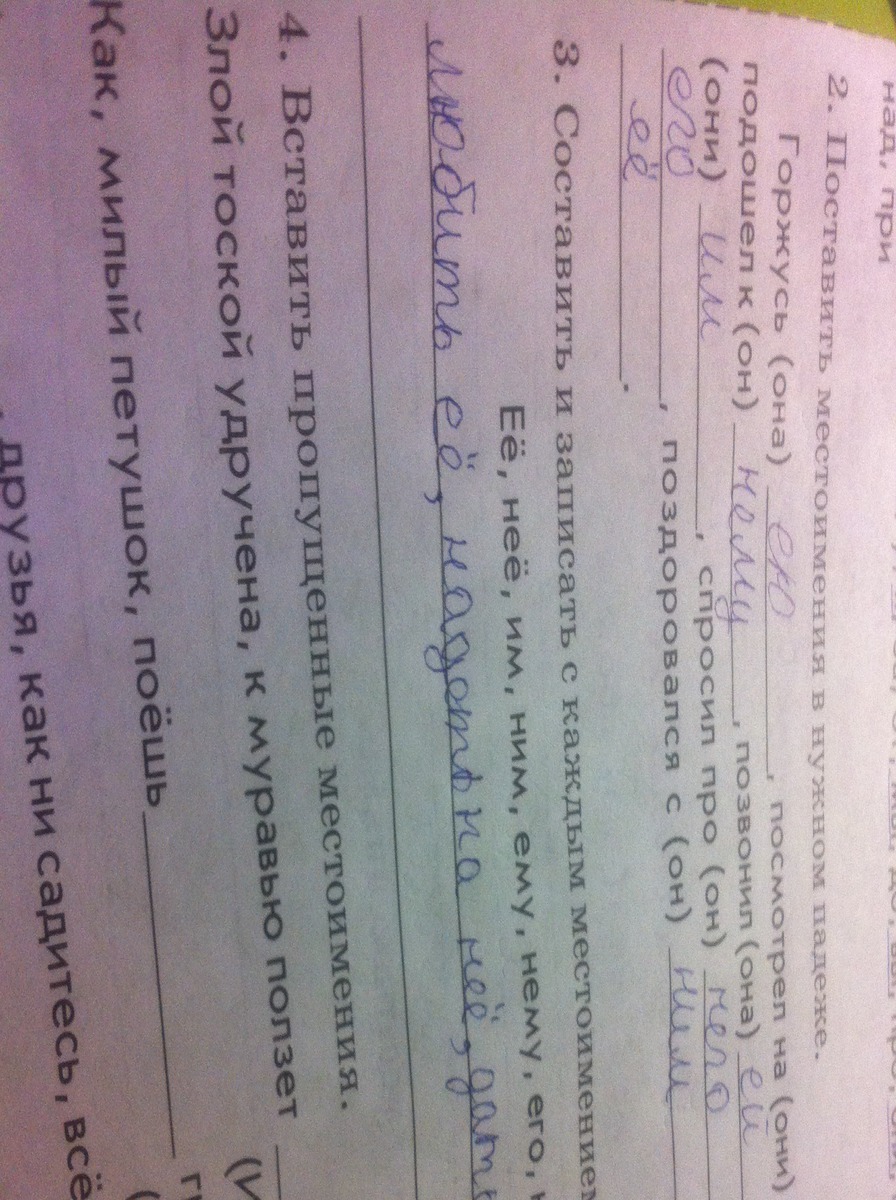 над, при
2. Поставить местоимения в нужном падеже.
Горжусь (она) ею, посмотрел на (они)
подошел к (он) нему, позвонил (она) ей
(они) им, спросил про (он) него
его, поздоровался с (он) ним
её.
3. Составить и записать с каждым местоимением
Её, неё, им, ним, ему, нему, его,
любить её, надеть на неё, дать
4. Вставить пропущенные местоимения.
Злой тоской удручена, к муравью ползет
Как, милый петушок, поёшь
, друзья, как ни садитесь, всё